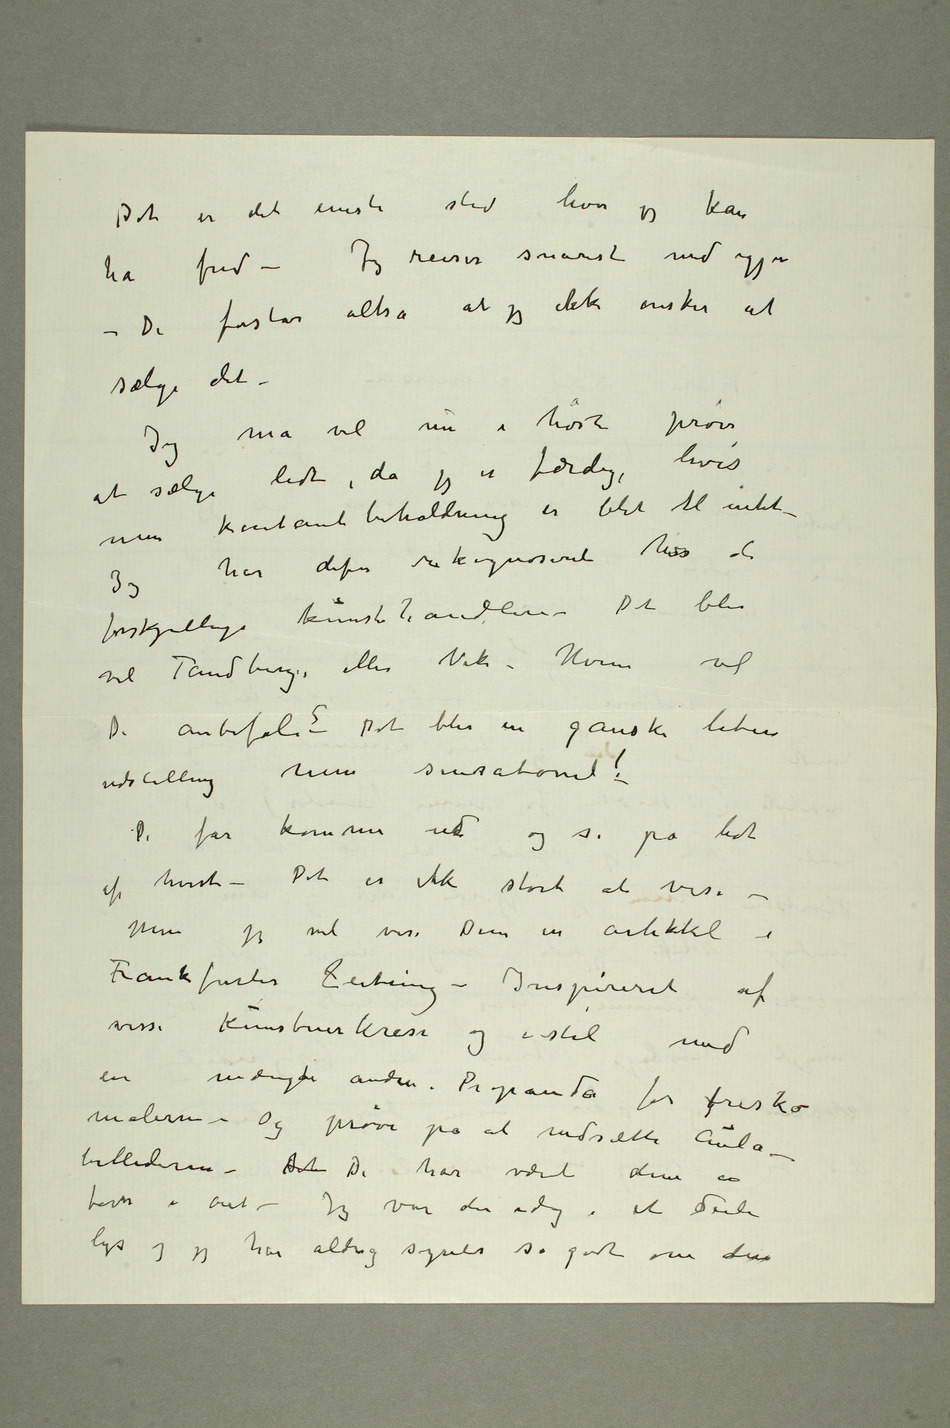 Det er det eneste sted hvor jeg kan
ha fred – Jeg reiser snarest ned igjen
– De forstår altså at jeg ikke ønsker at
sælge det –
Jeg må vel nu i høst prøve
at sælge lidt, da jeg er færdig, hvis
min kontantbeholdning er blet til intet –
Jeg har derfor rekognoseret hos de
forskjellige kunsthandlere – Det blir
vel Tandberg, eller Vik – Hvem vil
De anbefale? – Det blir en ganske liten
udstilling men sensationel!
De får komme ud og se på lidt
af hvert – Det er ikke stort at vise –
Men jeg vil vise Dem en artikkel i
Frankfurter Zeitung – Inspireret af
visse Kunstnerkrese og i stil med
en mængde andre. Propanda for fresko-
malerne – Og prøve på at nedsætte Aula-
billederne – De har vært dem en
torn i øiet – Jeg var der idag i et deile
lys og jeg har aldrig syntes så godt om dem